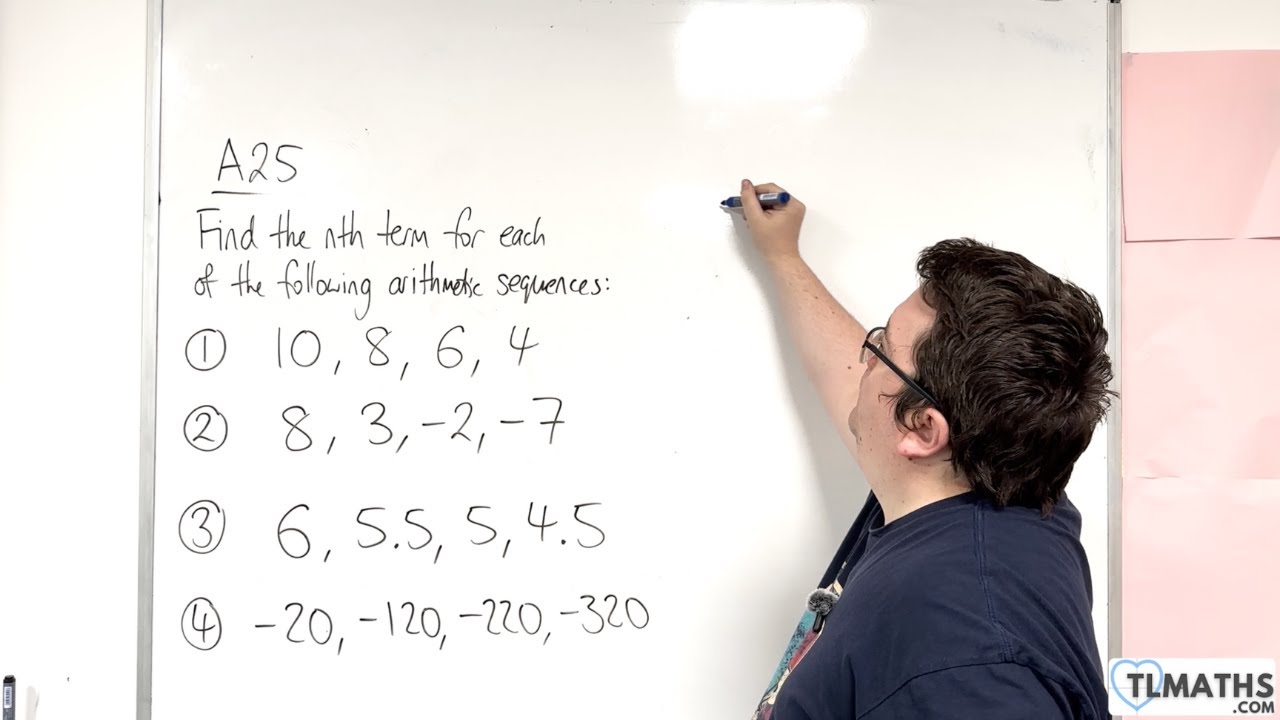 A25
Find the nth term for each
of the following arithmetic sequences:
① 10, 8, 6, 4
② 8, 3, -2, -7
③ 6, 5.5, 5, 4.5
④ -20, -120, -220, -320
TLMATHS
.COM